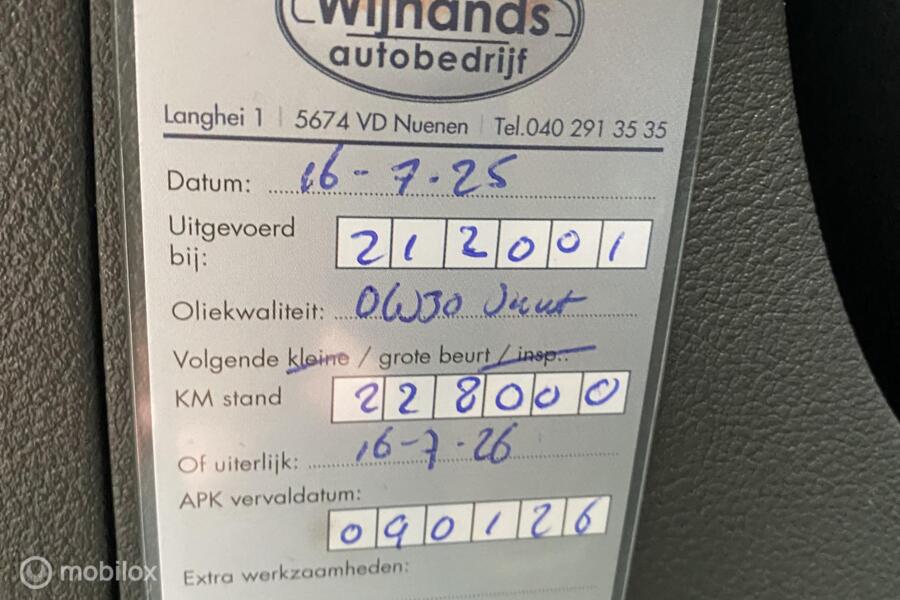 Wijnands
autobedrijf
Langhei 1 | 5674 VD Nuenen | Tel.040 291 35 35
Datum: 16-7-25
Uitgevoerd bij: 212001
Oliekwaliteit: 0W30
Volgende kleine / grote beurt / insp.:
KM stand 228000
Of uiterlijk: 16-7-26
APK vervaldatum:
090126
Extra werkzaamheden:
mobilox